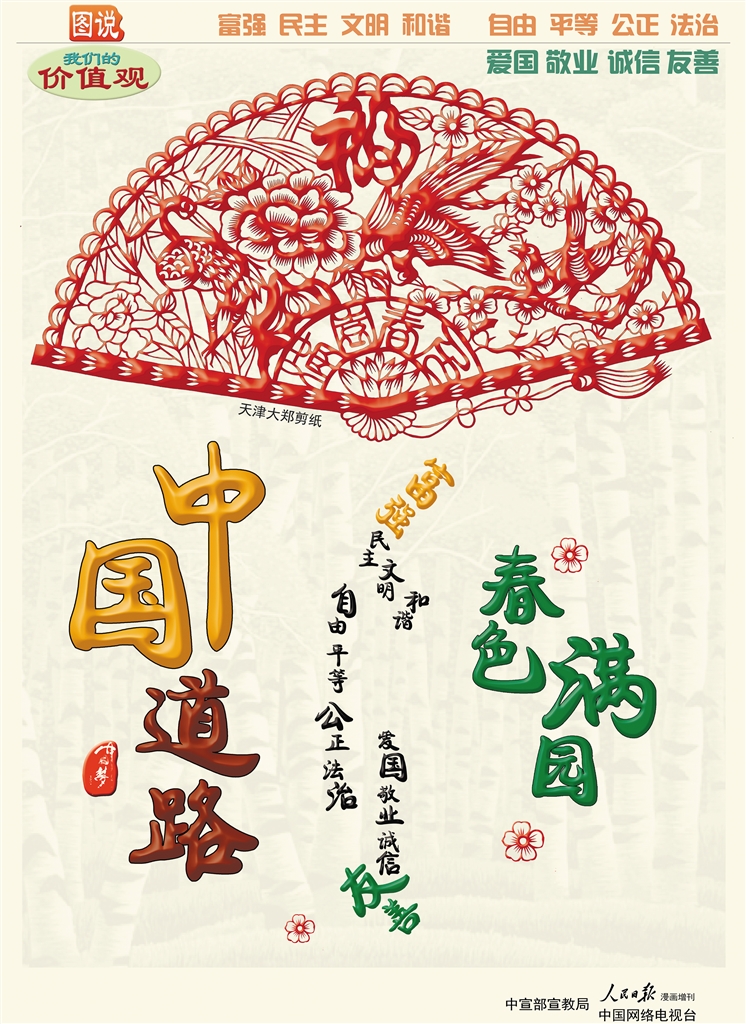 图说
我们的
价值观
富强 民主 文明 和谐 自由 平等 公正 法治
爱国 敬业 诚信 友善
福
天津大郑剪纸
中国
道路
中国梦
富强
民主
文明
和谐
自由
平等
公正
法治
爱国
敬业
诚信
友善
春色
满园
中宣部宣教局
人民日报 漫画增刊
中国网络电视台